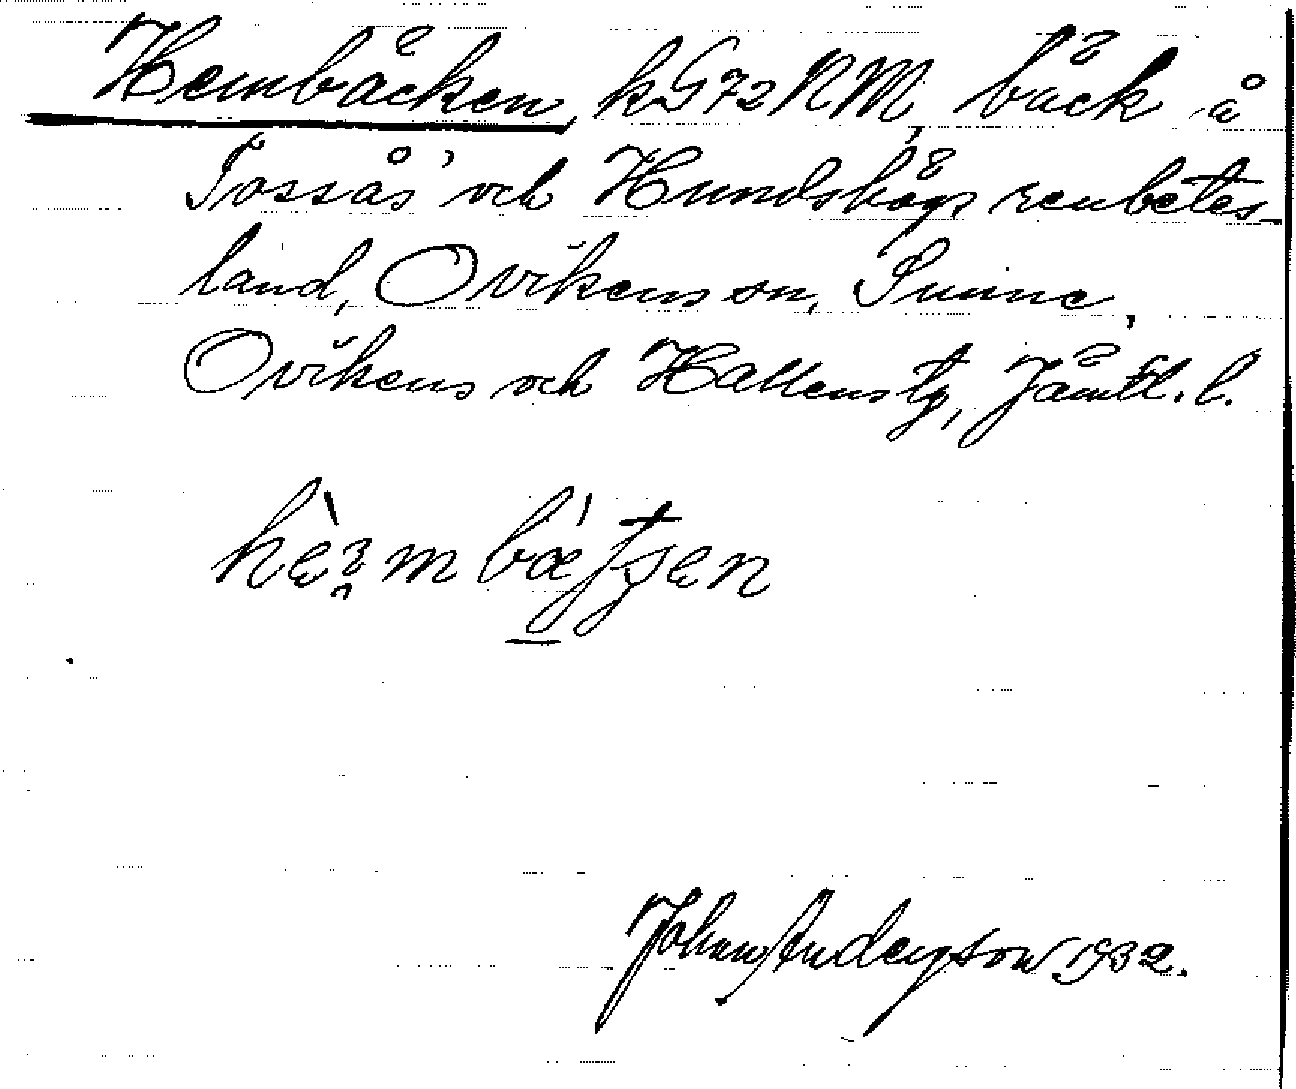 Hembäcken, kG72NM, bäck å
Tossås' och Hundshögs renbetes-
land, Ovikens sn, Sunne,
Ovikens och Hallens tg, Jämtl. l.
John Anderson 1932.